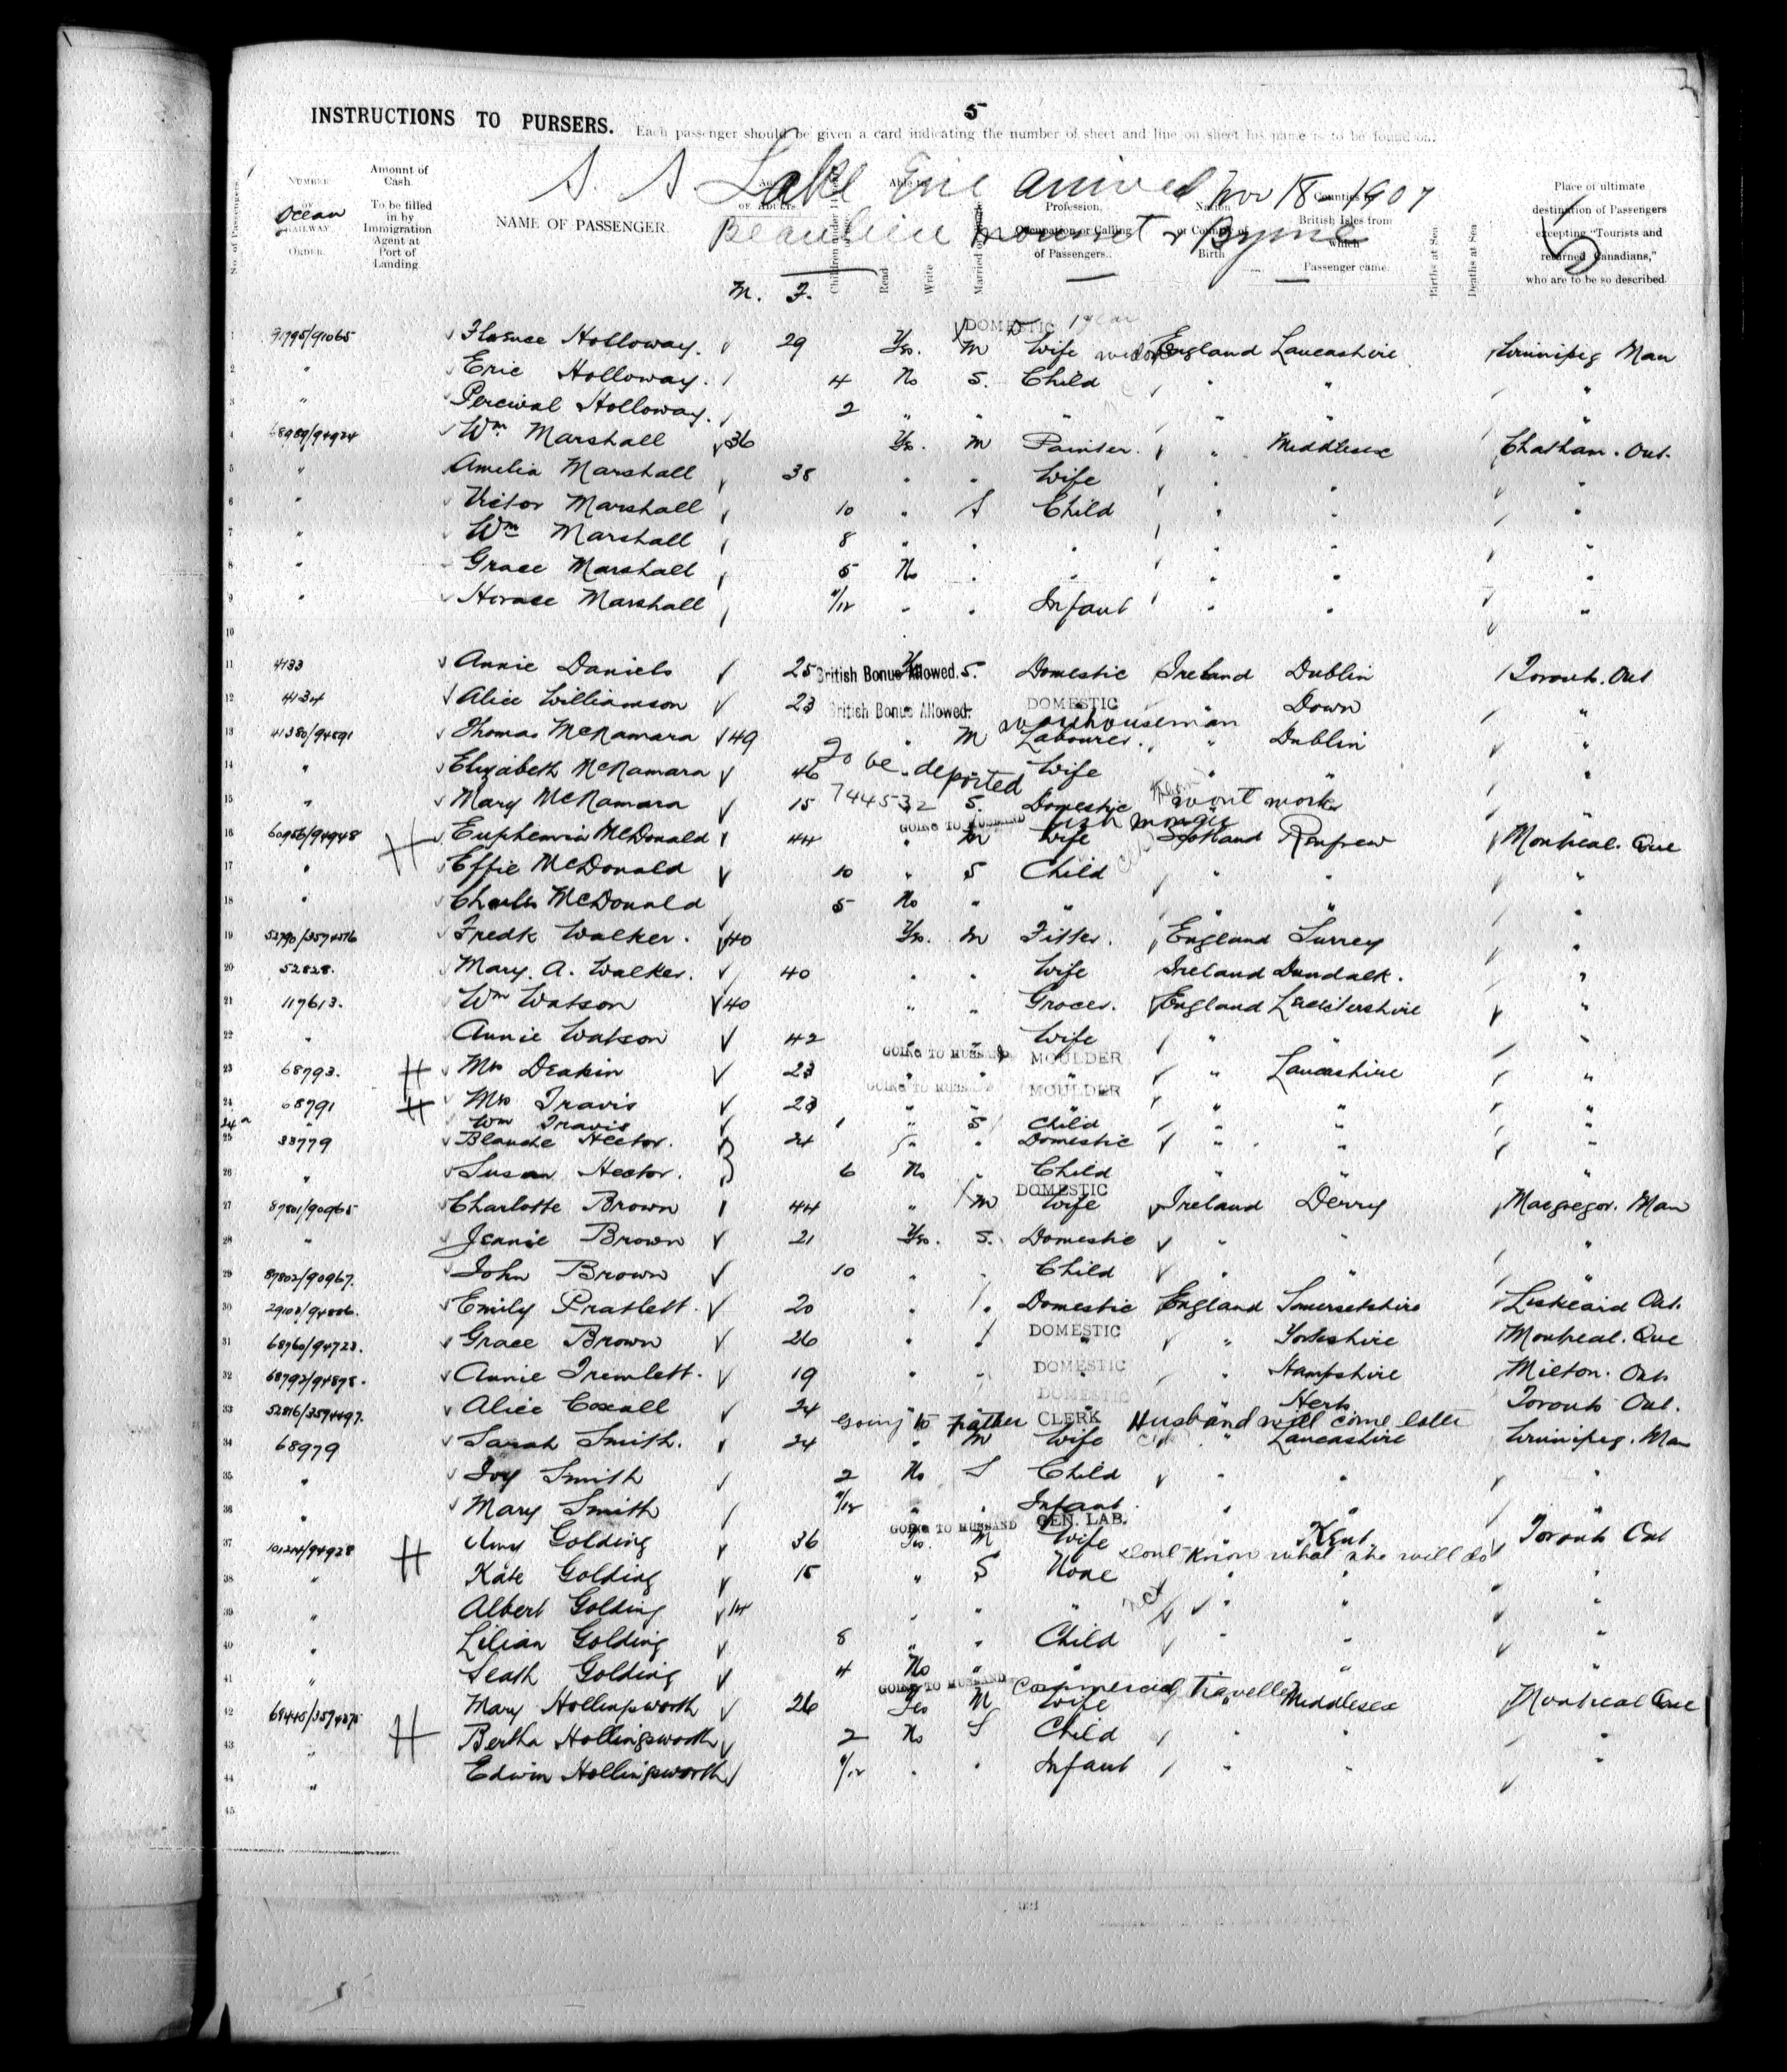 5
INSTRUCTIONS TO PURSERS. Each passenger should be given a card indicating the number of sheet and line on sheet his name is to be found on.
S. S. Lake Erie arrived Nov 18 1907
Beaulieu & Byrne
5
No. of Passengers. NUMBER OF Ocean RAILWAY ORDER. Amount of Cash. To be filled in by Immigration Agent at Port of Landing NAME OF PASSENGER. M. F. Read Write Profession, Occupation or Calling of Passengers. Nation or Country of Birth British Isles from which Passenger came. Births at Sea Deaths at Sea Place of ultimate destination of Passengers excepting "Tourists and returned Canadians," who are to be so described.
DOMESTIC 1 year
1 91795/91065 Florence Holloway. 29 Yes. M Wife England Lancashire Winnipeg Man
2 " Eric Holloway. 4 No S. Child " " "
3 " Percival Holloway. 2 " " " " " "
4 68989/94924 Wm Marshall 36 Yes. M Painter. " Middlesex Chatham. Ont.
5 " Amelia Marshall 38 " " Wife " " "
6 " Victor Marshall 10 " S Child " " "
7 " Wm Marshall 8 " " " " " "
8 " Grace Marshall 5 No " " " " "
9 " Horace Marshall /12 " " Infant " " "
10
11 4133 Annie Daniels 25 British Bonus Allowed. S. Domestic Ireland Dublin Toronto. Ont
12 4134 Alice Williamson 23 British Bonus Allowed. DOMESTIC " Down "
warehouseman
13 41380/94891 Thomas McNamara 49 " M Labourer. " Dublin "
14 " Elizabeth McNamara 46 " " Wife " " "
To be deported
15 " Mary McNamara 15 744532 S. Domestic wont work "
GOING TO HUSBAND
16 60956/94948 H Euphemia McDonald 44 " M Wife Scotland Renfrew Montreal. Que
17 " Effie McDonald 10 " S Child " " "
18 " Charles McDonald 5 No " " " " "
19 52790/3574576 Fredk Walker. 40 Yes. M Fitter. England Surrey "
20 52828. Mary. A. Walker. 40 " " Wife Ireland Dundalk. "
21 117613. Wm Watson 40 " " Grocer. England Leicestershire "
22 " Annie Watson 42 " " Wife " " "
GOING TO HUSBAND MOULDER
23 68793. H Mrs Deakin 23 " " " " Lancashire "
GOING TO HUSBAND MOULDER
24 68791 H Mrs Travis 23 " " " " " "
24a " Wm Travis 1 " S Child " " "
25 33779 Blanche Hector. 24 " Domestic " " "
26 " Susan Hector. 6 No " Child " " "
DOMESTIC
27 87801/90965 Charlotte Brown 44 " M Wife Ireland Derry Macgregor. Man
28 " Jennie Brown 21 Yes. S. Domestic " " "
29 87802/90967. John Brown 10 " " Child " " "
30 Emily Pratlett. 20 " Domestic England Somersetshire Liskeaid Ont.
31 68960/94723. Grace Brown 26 " DOMESTIC " Yorkshire Montreal. Que
32 68792/94878. Annie Tremlett. 19 " " DOMESTIC " Hampshire Milton. Ont.
DOMESTIC
33 52816/3594497. Alice Coxall 24 " " " " Herts Toronto Ont.
Going to Father CLERK Husband will come later
34 68979 Sarah Smith. 24 " M Wife " Lancashire Winnipeg. Man
35 " Ivy Smith 2 No S Child " " "
36 " Mary Smith /12 " " Infant. " " "
GOING TO HUSBAND GEN. LAB.
37 101244/94928 H Amy Golding 36 Yes. M Wife " Kent. Toronto Ont
dont know what she will do
38 " Kate Golding 15 " S None " " "
39 " Albert Golding 14 " " " " " "
40 " Lilian Golding 8 " " Child " " "
41 " Seath Golding 4 No " " " "
GOING TO HUSBAND Commercial Traveller
42 Mary Hollingsworth 26 Yes M Wife " Middlesex Montreal Que
43 " H Bertha Hollingsworth 2 No S Child " " "
44 " Edwin Hollingsworth /12 " " Infant " " "
45